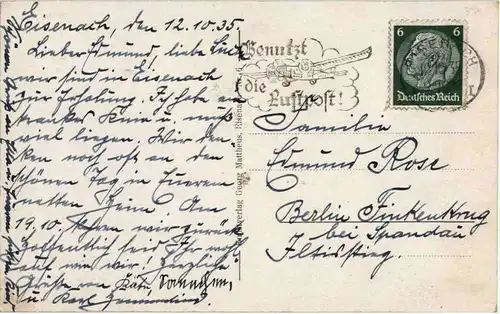 Eisenach, den 12.10.35
Lieber Edmund, liebe
wir sind in Eisenach
zur Erholung. Ich habe
krankes Knie u. muß
viel liegen. Wir den-
ken noch oft an den
schönen Tag in Eurem
netten Heim. Am
19.10. fahren wir zurück
Hoffentlich seid Ihr wohl
auf wie wir! Herzliche
Grüße von
u. Karl
Georg Mattheus, Eisenach
Benutzt
die
Luftpost!
6 6
Deutsches Reich
EISENACH
Familie
Edmund Rose
Berlin Finkenkrug
bei Spandau
Iltisstieg.